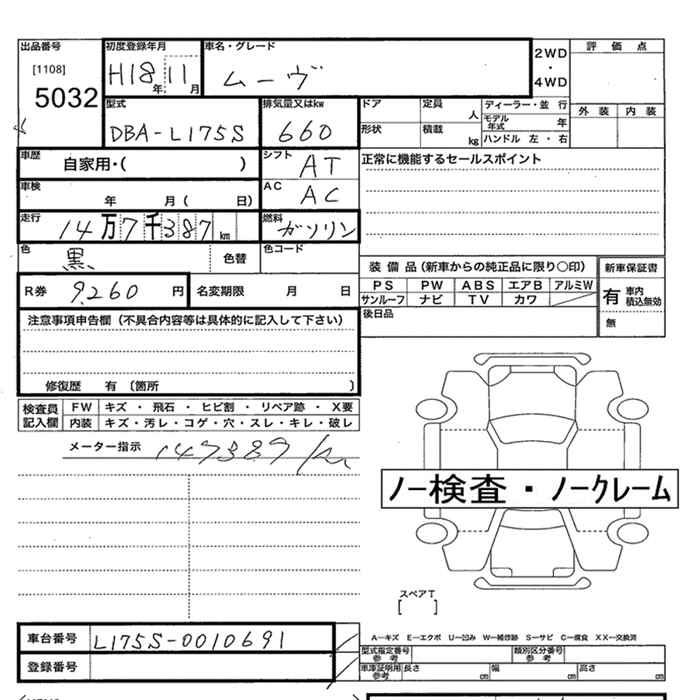 出品番号 初度登録年月 車名・グレード 2WD・4WD 評価点
[1108] 5032 H18年11月 ムーヴ 外装 内装
型式 排気量又はkw ドア 定員 人 ディーラー・並行
DBA-L175S 660 形状 積載 kg モデル年式 年
ハンドル 左・右
車歴 自家用・( ) シフト AT 正常に機能するセールスポイント
車検 年 月( 日) AC AC
走行 14万7千387km 燃料 ガソリン
色 黒 色替 色コード
装備品(新車からの純正品に限り〇印) 新車保証書
R券 9,260円 名変期限 月 日 PS PW ABS エアB アルミW 有 車内積込無効
サンルーフ ナビ TV カワ
注意事項申告欄(不具合内容等は具体的に記入して下さい) 後日品 無
修復歴 有〔箇所 〕
検査員記入欄 FW キズ・飛石・ヒビ割・リペア跡・X要
内装 キズ・汚レ・コゲ・穴・スレ・キレ・破レ
メーター指示 147387km
ノー検査・ノークレーム
スペアT
[ ]
車台番号 L175S-0010691 A―キズ E―エクボ U―凹み W―補修跡 S―サビ C―腐食 XX―交換済
型式指定番号 参考 類別区分番号 参考
登録番号 車庫証明用 参考 長さ cm 幅 cm 高さ cm